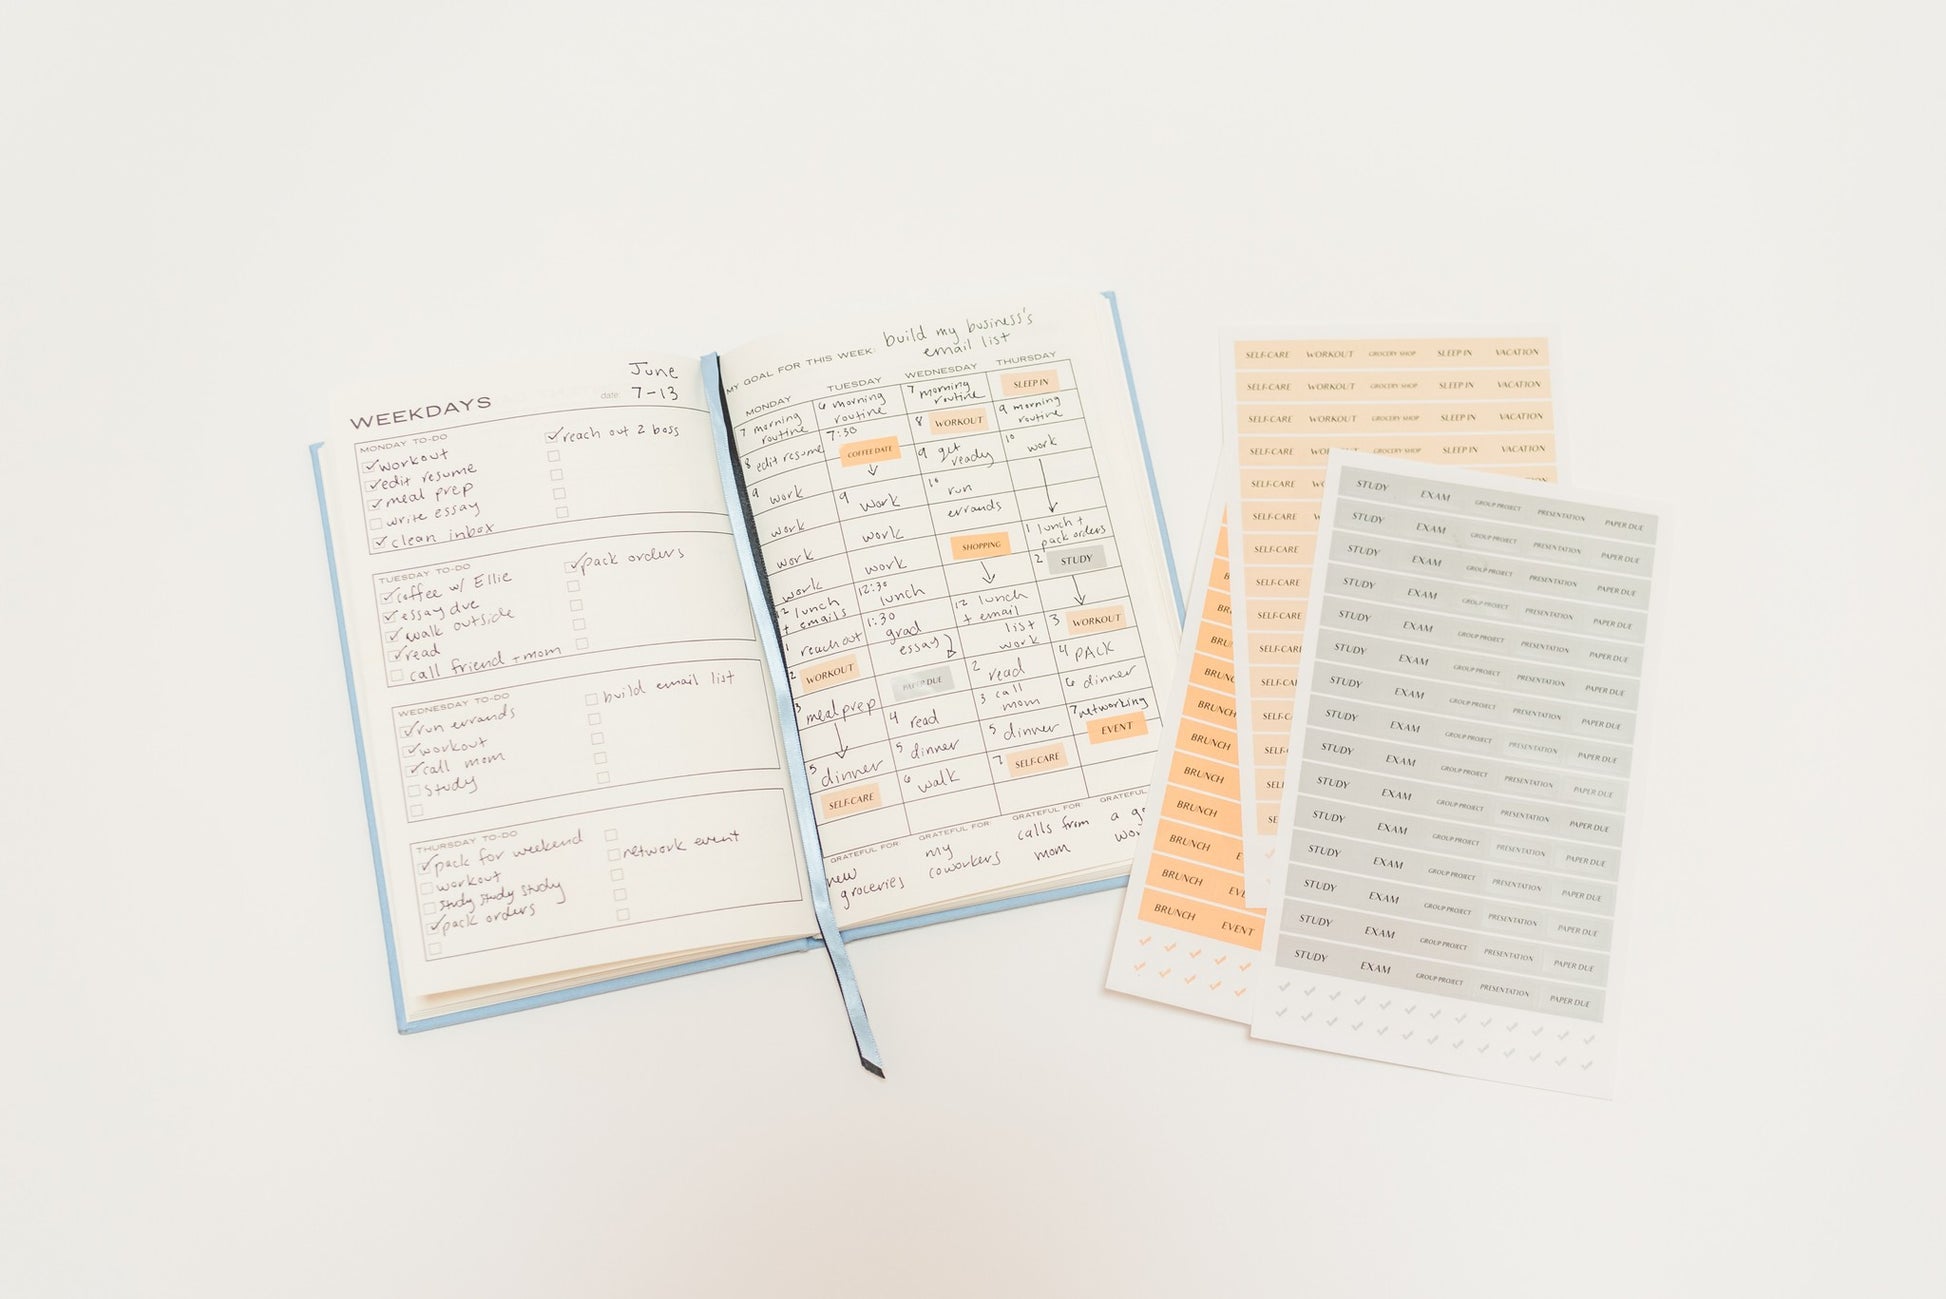 June
WEEKDAYS
date: 7-13
MONDAY TO-DO
workout
edit resume
meal prep
write essay
clean inbox
reach out 2 boss
TUESDAY TO-DO
coffee w/ Ellie
essay due
walk outside
read
call friend + mom
pack orders
WEDNESDAY TO-DO
run errands
workout
call mom
study
build email list
THURSDAY TO-DO
pack for weekend
workout
study study study
pack orders
network event
MY GOAL FOR THIS WEEK: build my business's
email list
MONDAY
7 morning
routine
8 edit resume
9 work
work
work
work
12 lunch
+ emails
1 reach out
2 WORKOUT
3 meal prep
5 dinner
SELF-CARE
GRATEFUL FOR:
new
groceries
TUESDAY
6 morning
routine
7:30
COFFEE DATE
9 work
work
work
12:30
lunch
1:30
grad
essay
PAPER DUE
4 read
5 dinner
6 walk
GRATEFUL FOR:
my
coworkers
WEDNESDAY
7 morning
routine
8 WORKOUT
9 get
ready
10 run
errands
SHOPPING
12 lunch
+ email
list
work
2 read
3 call
mom
5 dinner
7 SELF-CARE
GRATEFUL FOR:
calls from
mom
THURSDAY
SLEEP IN
9 morning
routine
10 work
1 lunch +
pack orders
2 STUDY
3 WORKOUT
4 PACK
6 dinner
7 networking
EVENT
GRATEFUL FOR
a
SELF-CARE WORKOUT GROCERY SHOP SLEEP IN VACATION
SELF-CARE WORKOUT GROCERY SHOP SLEEP IN VACATION
SELF-CARE WORKOUT GROCERY SHOP SLEEP IN VACATION
SELF-CARE WORKOUT GROCERY SHOP SLEEP IN VACATION
SELF-CARE
SELF-CARE
SELF-CARE
SELF-CARE
SELF-CARE
SELF-CARE
BRUNCH
BRUNCH
BRUNCH
BRUNCH
BRUNCH
BRUNCH
BRUNCH EVENT
STUDY EXAM GROUP PROJECT PRESENTATION PAPER DUE
STUDY EXAM GROUP PROJECT PRESENTATION PAPER DUE
STUDY EXAM GROUP PROJECT PRESENTATION PAPER DUE
STUDY EXAM GROUP PROJECT PRESENTATION PAPER DUE
STUDY EXAM GROUP PROJECT PRESENTATION PAPER DUE
STUDY EXAM GROUP PROJECT PRESENTATION PAPER DUE
STUDY EXAM GROUP PROJECT PRESENTATION PAPER DUE
STUDY EXAM GROUP PROJECT PRESENTATION PAPER DUE
STUDY EXAM GROUP PROJECT PRESENTATION PAPER DUE
STUDY EXAM GROUP PROJECT PRESENTATION PAPER DUE
STUDY EXAM GROUP PROJECT PRESENTATION PAPER DUE
STUDY EXAM GROUP PROJECT PRESENTATION PAPER DUE
STUDY EXAM GROUP PROJECT PRESENTATION PAPER DUE
STUDY EXAM GROUP PROJECT PRESENTATION PAPER DUE
STUDY EXAM GROUP PROJECT PRESENTATION PAPER DUE